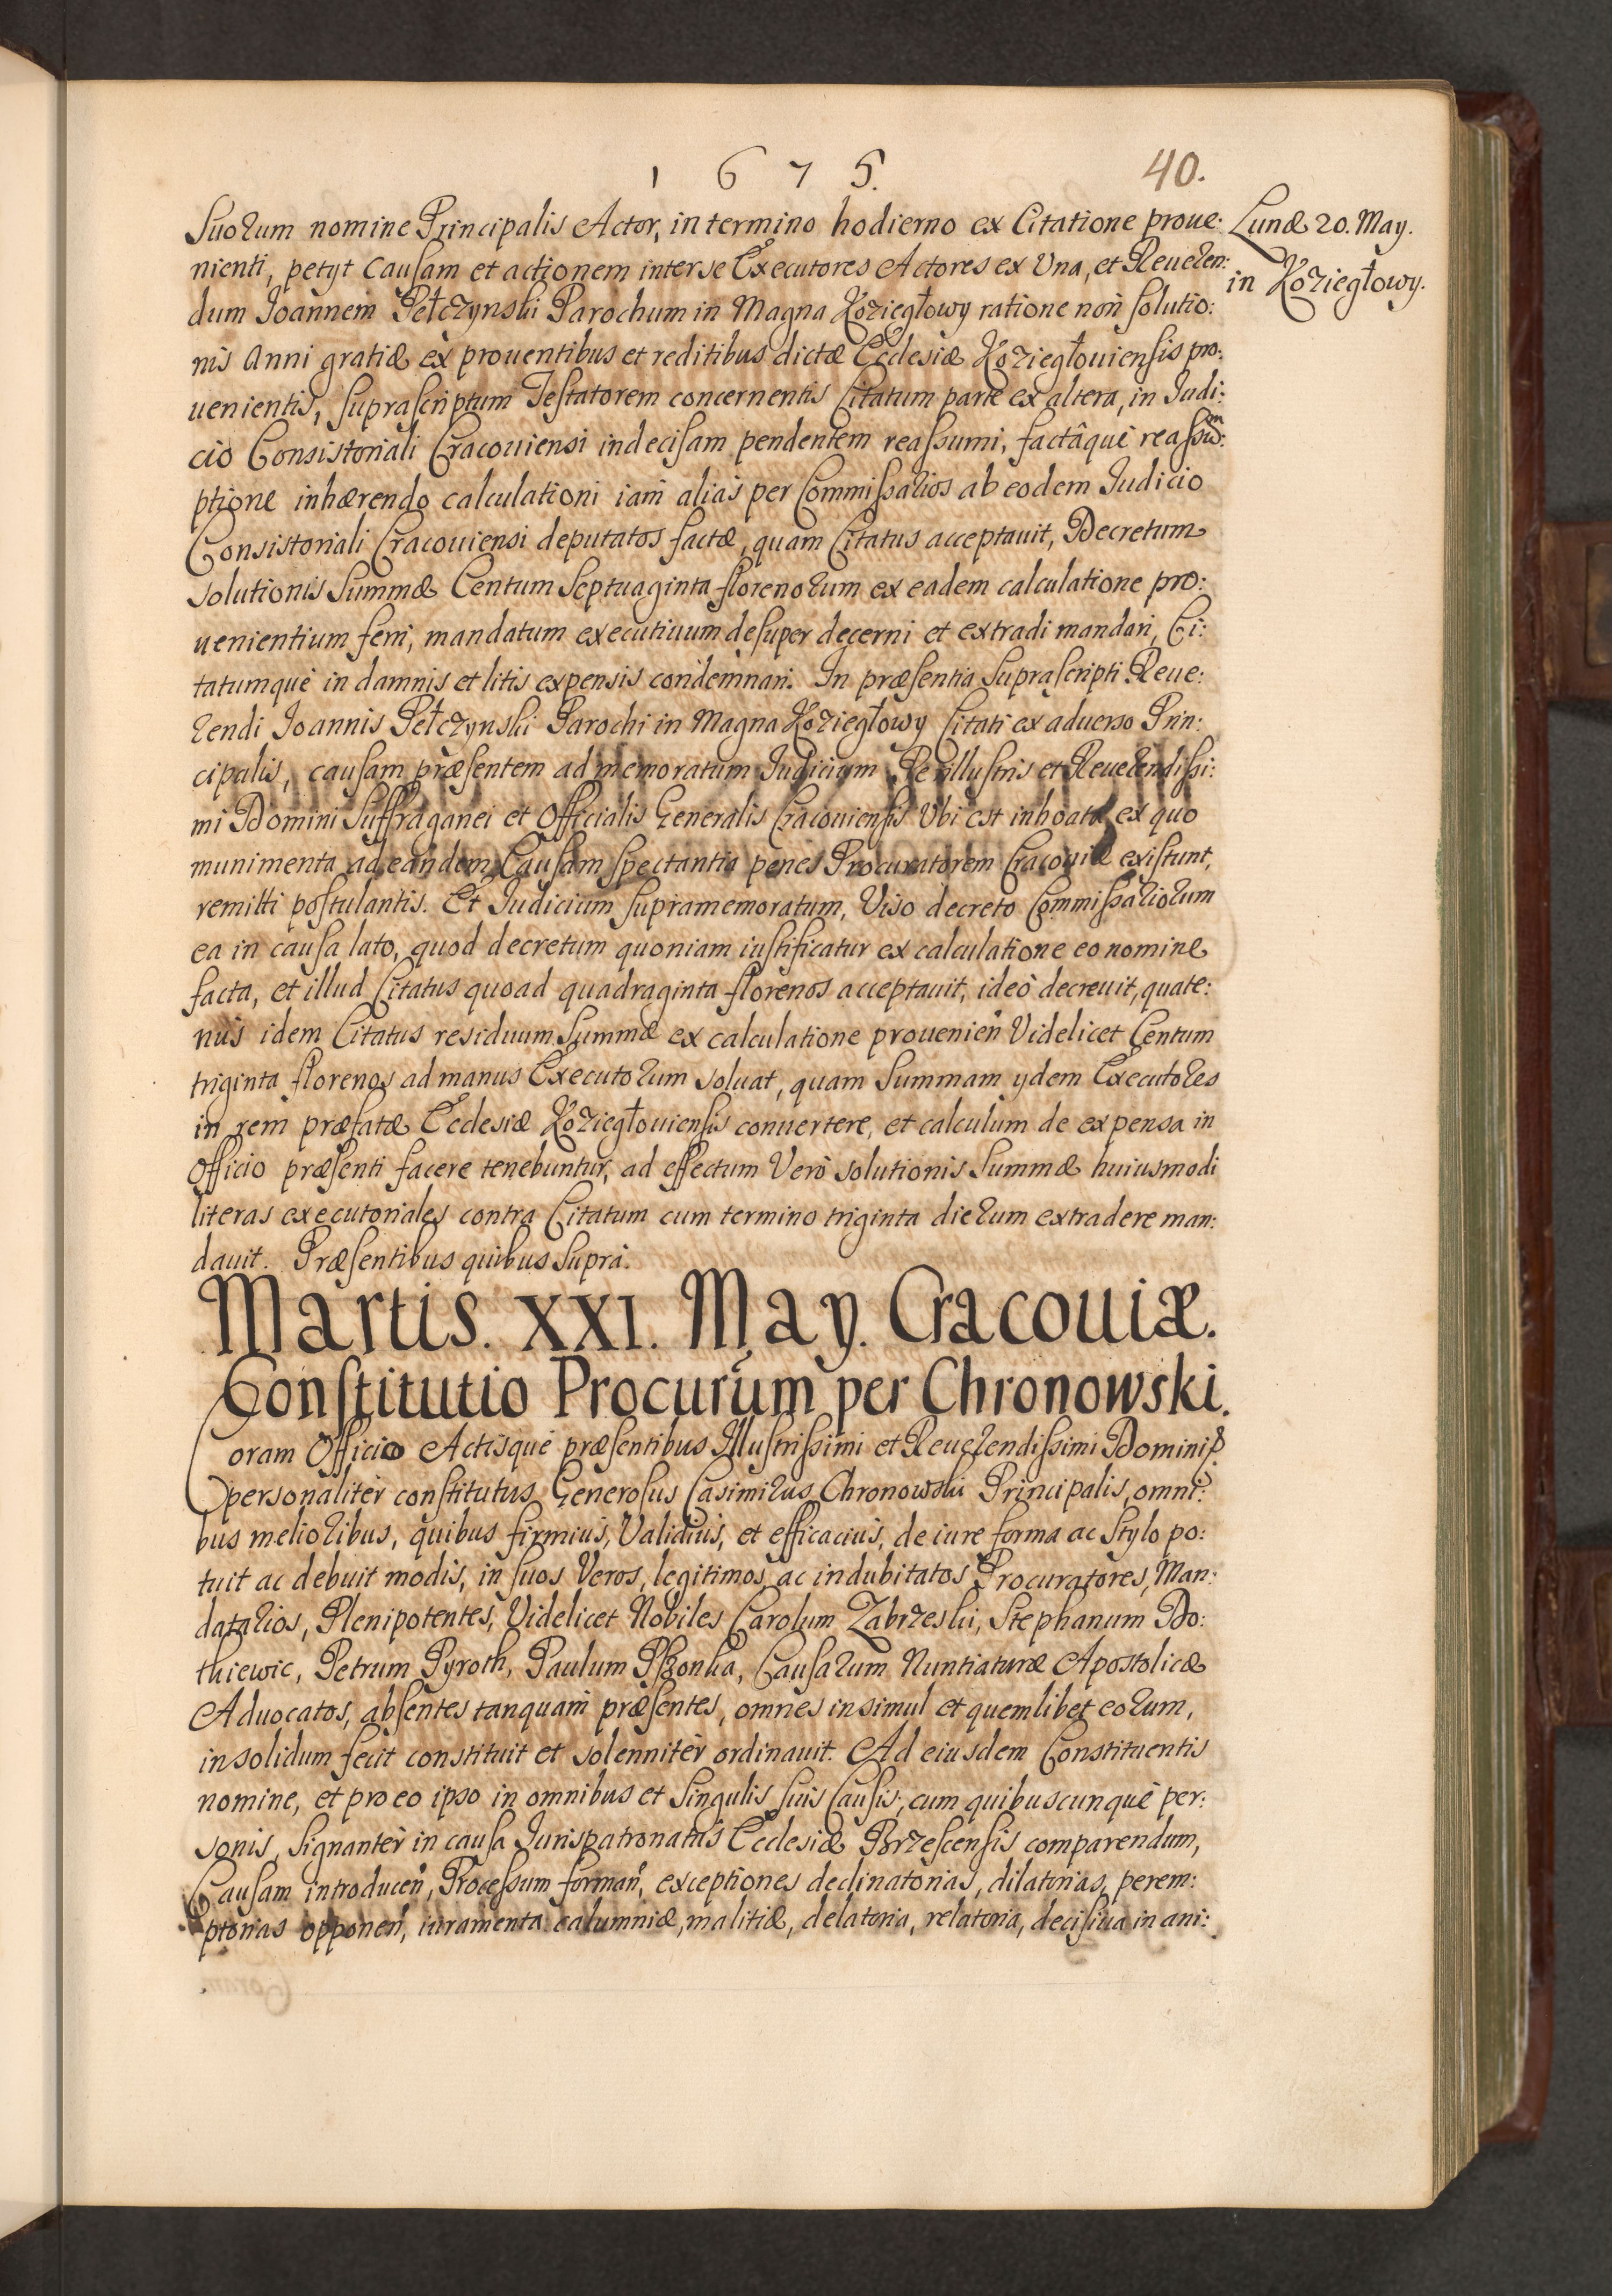 1675.
40.
Lunæ 20. May.
in Koziegłowy.
suorum nomine Principalis Actor, in termino hodierno ex Citatione proue:
nienti, petyt Causam et actionem inter se Executores Actores ex Vna, et Reueren:
dum Joannem Pełczynski Parochum in Magna Koziegłowy ratione non solutio:
nis Anni gratiæ ex prouentibus et reditibus dictæ Ecclesiæ Koziegłouiensis pro:
uenientis, suprascriptum Testatorem concernentis Citatum parte ex altera, in Judi:
cio Consistoriali Cracouiensi indecisam pendentem reassumi, factâque reassum:
ptione inhærendo calculationi iam aliàs per Commissarios ab eodem Iudicio
Consistoriali Cracouiensi deputatos factæ, quam Citatus acceptauit, Decretum
solutionis Summæ Centum Septuaginta florenorum ex eadem calculatione pro:
uenientium ferri, mandatum executiuum desuper decerni et extradi mandari, Ci:
tatumquè in damnis et litis expensis condemnari. In præsentia Suprascripti Reue:
rendi Joannis Pełczynski Parochi in Magna Koziegłowy Citati ex aduerso Prin:
cipalis, causam præsentem ad memoratum Iudicium Perillustris et Reuerendissi:
mi Domini Suffraganei et Officialis Generalis Cracouiensis Vbi est inhoata ex quo
munimenta ad eandem Causam spectantia penes Procuratorem Cracouiæ existunt,
remitti postulantis. Et Judicium supramemoratum, Viso decreto Commissariorum
ea in causa lato, quod decretum quoniam iustificatur ex calculatione eo nomine
facta, et illud Citatus quoad quadraginta florenos acceptauit, ideò decreuit, quate:
nus idem Citatus residuum Summæ ex calculatione prouenien̄ Videlicet Centum
triginta florenos ad manus Executorum soluat, quam Summam ydem Executores
in rem præfatæ Ecclesiæ Koziegłouiensis conuertere, et calculum de expensa in
Officio præsenti facere tenebuntur, ad effectum Verò solutionis Summæ huiusmodi
literas executoriales contra Citatum cum termino triginta dierum extradere man:
dauit. Præsentibus quibus Suprà.
Martis. XXI. May. Cracouiæ.
Constitutio Procurum per Chronowski.
Coram Officio Actisquè præsentibus Illustrissimi et Reuerendissimi Domini
personalitèr constitutus Generosus Casimirus Chronowski Principalis, omni:
bus melioribus, quibus firmiùs, Validiùs, et efficaciùs, de iure forma ac Stylo po:
tuit ac debuit modis, in suos Veros, legitimos, ac indubitatos Procuratores, Man:
datarios, Plenipotentes, Videlicet Nobiles Carolum Zabrzeski, Stephanum Do:
thiewic, Petrum Pyroth, Paulum Pszonka, Causarum Nuntiaturæ Apostolicæ
Aduocatos, absentes tanquam præsentes, omnes insimul et quemlibet eorum,
insolidum fecit constituit et solennitèr ordinauit. Ad eiusdem Constituentis
nomine, et pro eo ipso in omnibus et Singulis suis Causis, cum quibuscunquè per:
sonis, signantèr in causa Iurispatronatûs Ecclesiæ Brzescensis comparendum,
Causam introducen̄, Processum forman̄, exceptiones declinatorias, dilatorias, perem:
ptorias opponen̄, iuramenta calumniæ, malitiæ, delatoria, relatoria, decisiua in ani: